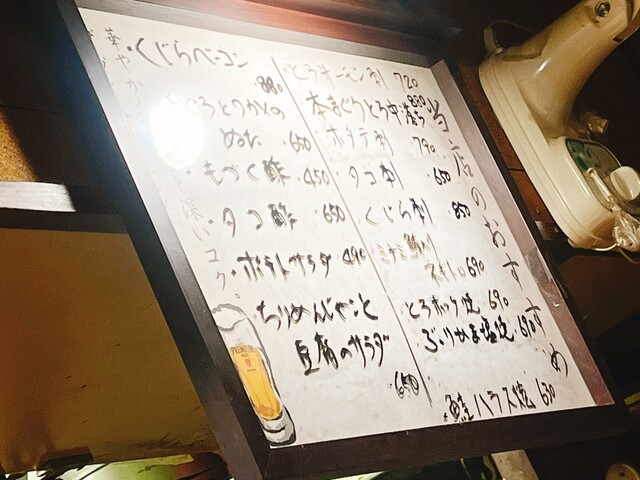 当店のおすすめ
とろサーモン刺 720
本まぐろとろ中落ち 880
・ホタテ刺 790
・タコ刺 650
くじら刺 850
690
とろホッケ焼 690
ぶりかま塩焼 690
鮭ハラス焼 630
・くじらベーコン
880
まぐろとワカメの
ぬた ・600
・もづく酢 ・450
・タコ酢 ・650
・ポテトサラダ 490
ちりめんじゃこと
豆腐のサラダ
・650
華やか
深いコク。